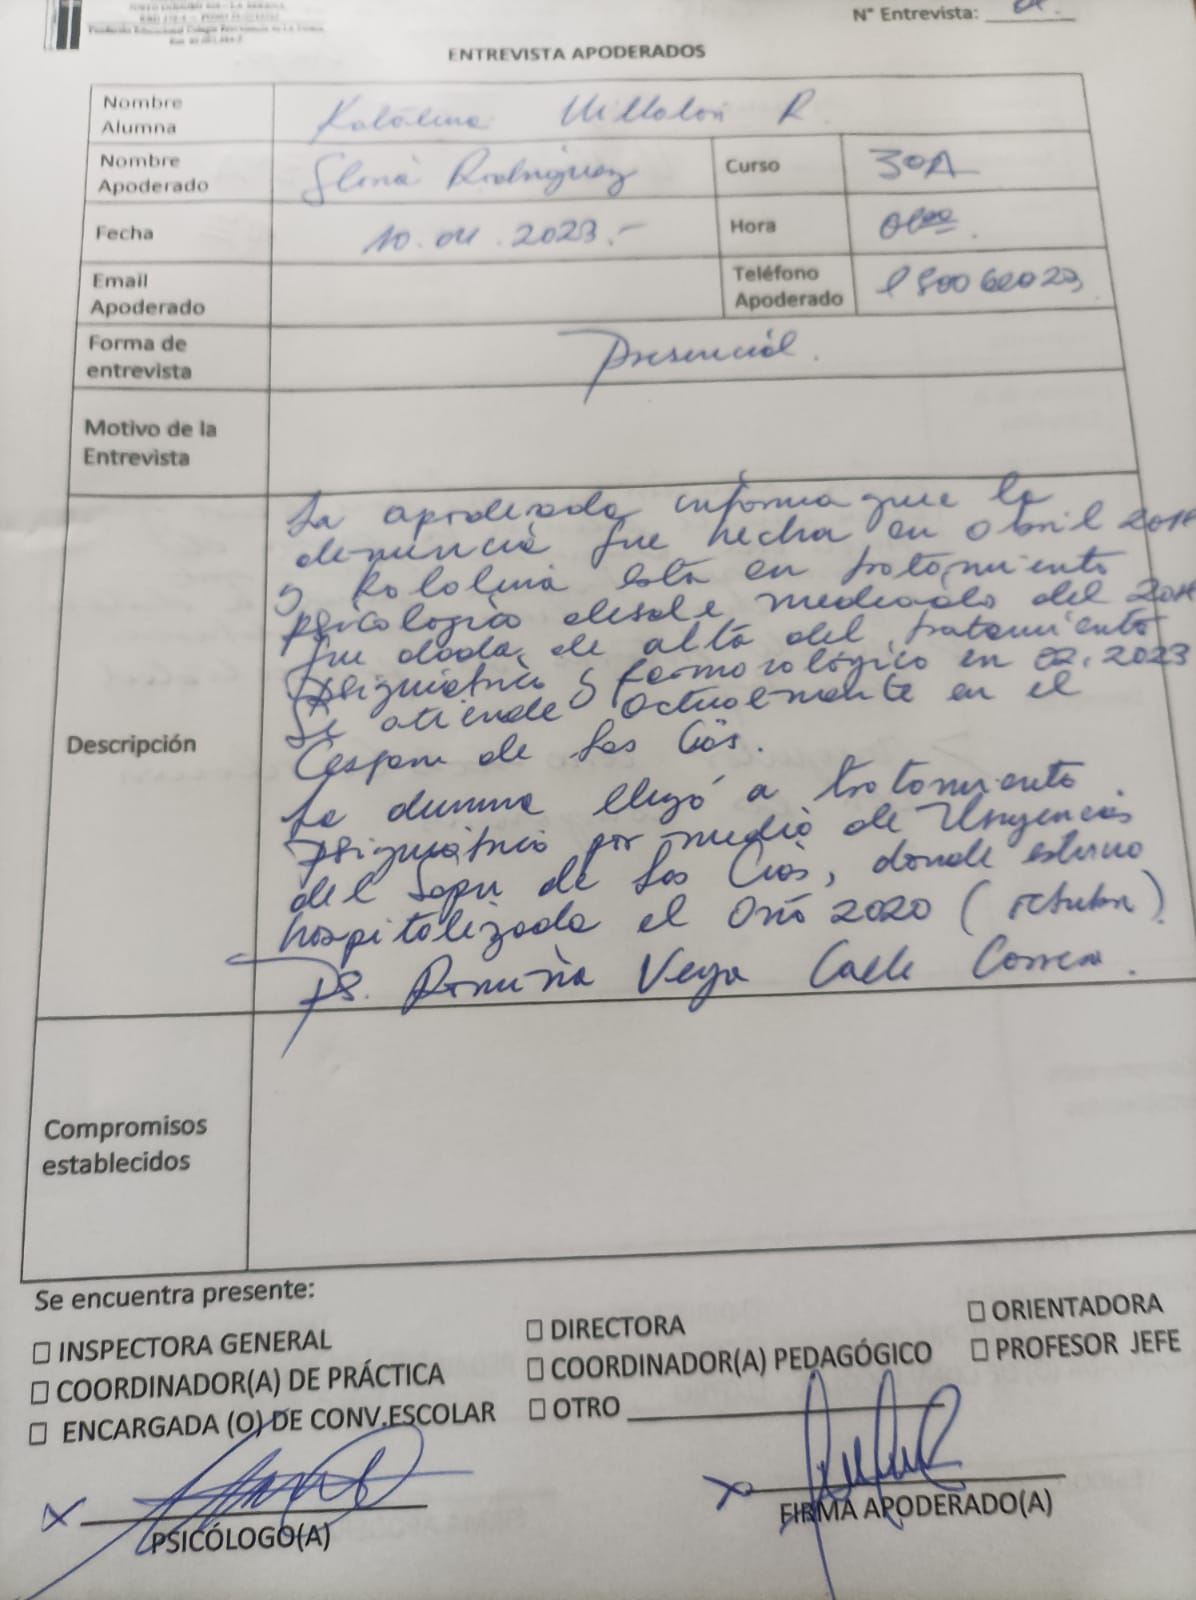 Fundación Educacional Colegio Providencia de La Serena
N° Entrevista:
ENTREVISTA APODERADOS
Nombre Alumna Katalina Villalon R
Nombre Apoderado Rodriguez Curso 30A
Fecha 10.04.2023.- Hora
Email Apoderado Teléfono Apoderado
Forma de entrevista Presencial.
Motivo de la Entrevista
Descripción
La apoderada informa que la
denuncia fue hecha en abril
y Katalina está en tratamiento
psicologico desde mediado del
fue dada de alta del tratamiento
psiquiatrico y farmacológico en 02.2023
Se atiende actualmente en el
Cesfam de Las Cias.
La alumna llegó a tratamiento
psiquiátrico por medio de Urgencias
del Sapu de Las Cias, donde estuvo
hospitalizada el año 2020 (octubre)
PS. Romina Vega Calle Correa.
Compromisos establecidos
Se encuentra presente:
☐ INSPECTORA GENERAL ☐ DIRECTORA ☐ ORIENTADORA
☐ COORDINADOR(A) DE PRÁCTICA ☐ COORDINADOR(A) PEDAGÓGICO ☐ PROFESOR JEFE
☐ ENCARGADA (O) DE CONV.ESCOLAR ☐ OTRO
X X
PSICÓLOGO(A) FIRMA APODERADO(A)